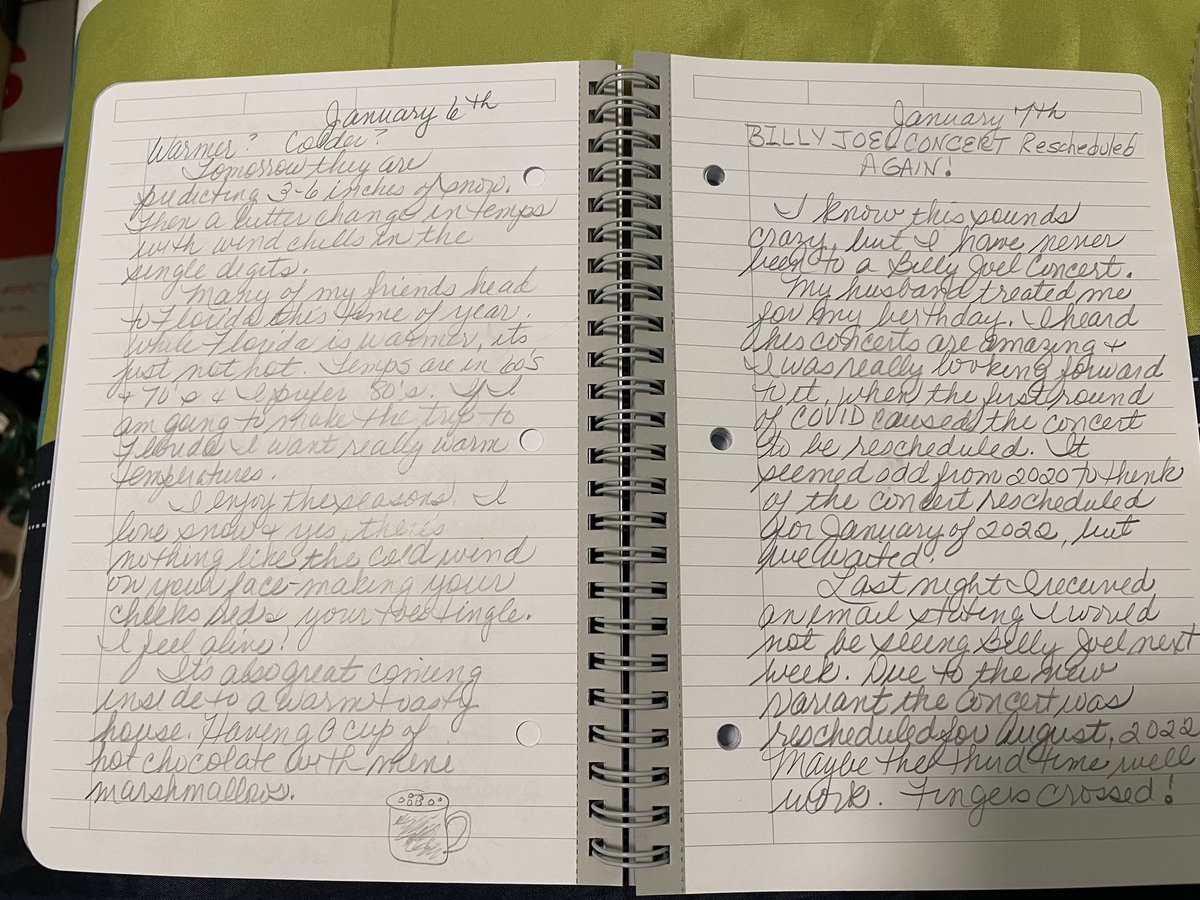 January 6th
Warmer? Colder?
Tomorrow they are
predicting 3-6 inches of snow.
Then a bitter change in temps
with wind chills in the
single digits.
Many of my friends head
to Florida this time of year.
While Florida is warmer, its
just not hot. Temps are in 60's
+ 70's & I prefer 80's. If I
am going to make the trip to
Florida I want really warm
temperatures.
I enjoy the seasons. I
love snow & yes, theres
nothing like the cold wind
on your face-making your
cheeks red & your toes tingle.
I feel alive!
It's also great coming
inside to a warm toasty
house. Having a cup of
hot chocolate with mini
marshmallows.
January 7th
BILLY JOEL CONCERT Rescheduled
AGAIN!
I know this sounds
crazy, but I have never
been to a Billy Joel Concert.
My husband treated me
for my birthday. I heard
his concerts are amazing +
I was really looking forward
to it, when the first round
of COVID caused the concert
to be rescheduled. It
seemed odd from 2020 to think
of the concert rescheduled
for January of 2022, but
we waited.
Last night I received
an email stating I would
not be seeing Billy Joel next
week. Due to the new
variant the concert was
rescheduled for August, 2022
Maybe the third time will
work. Fingers crossed!